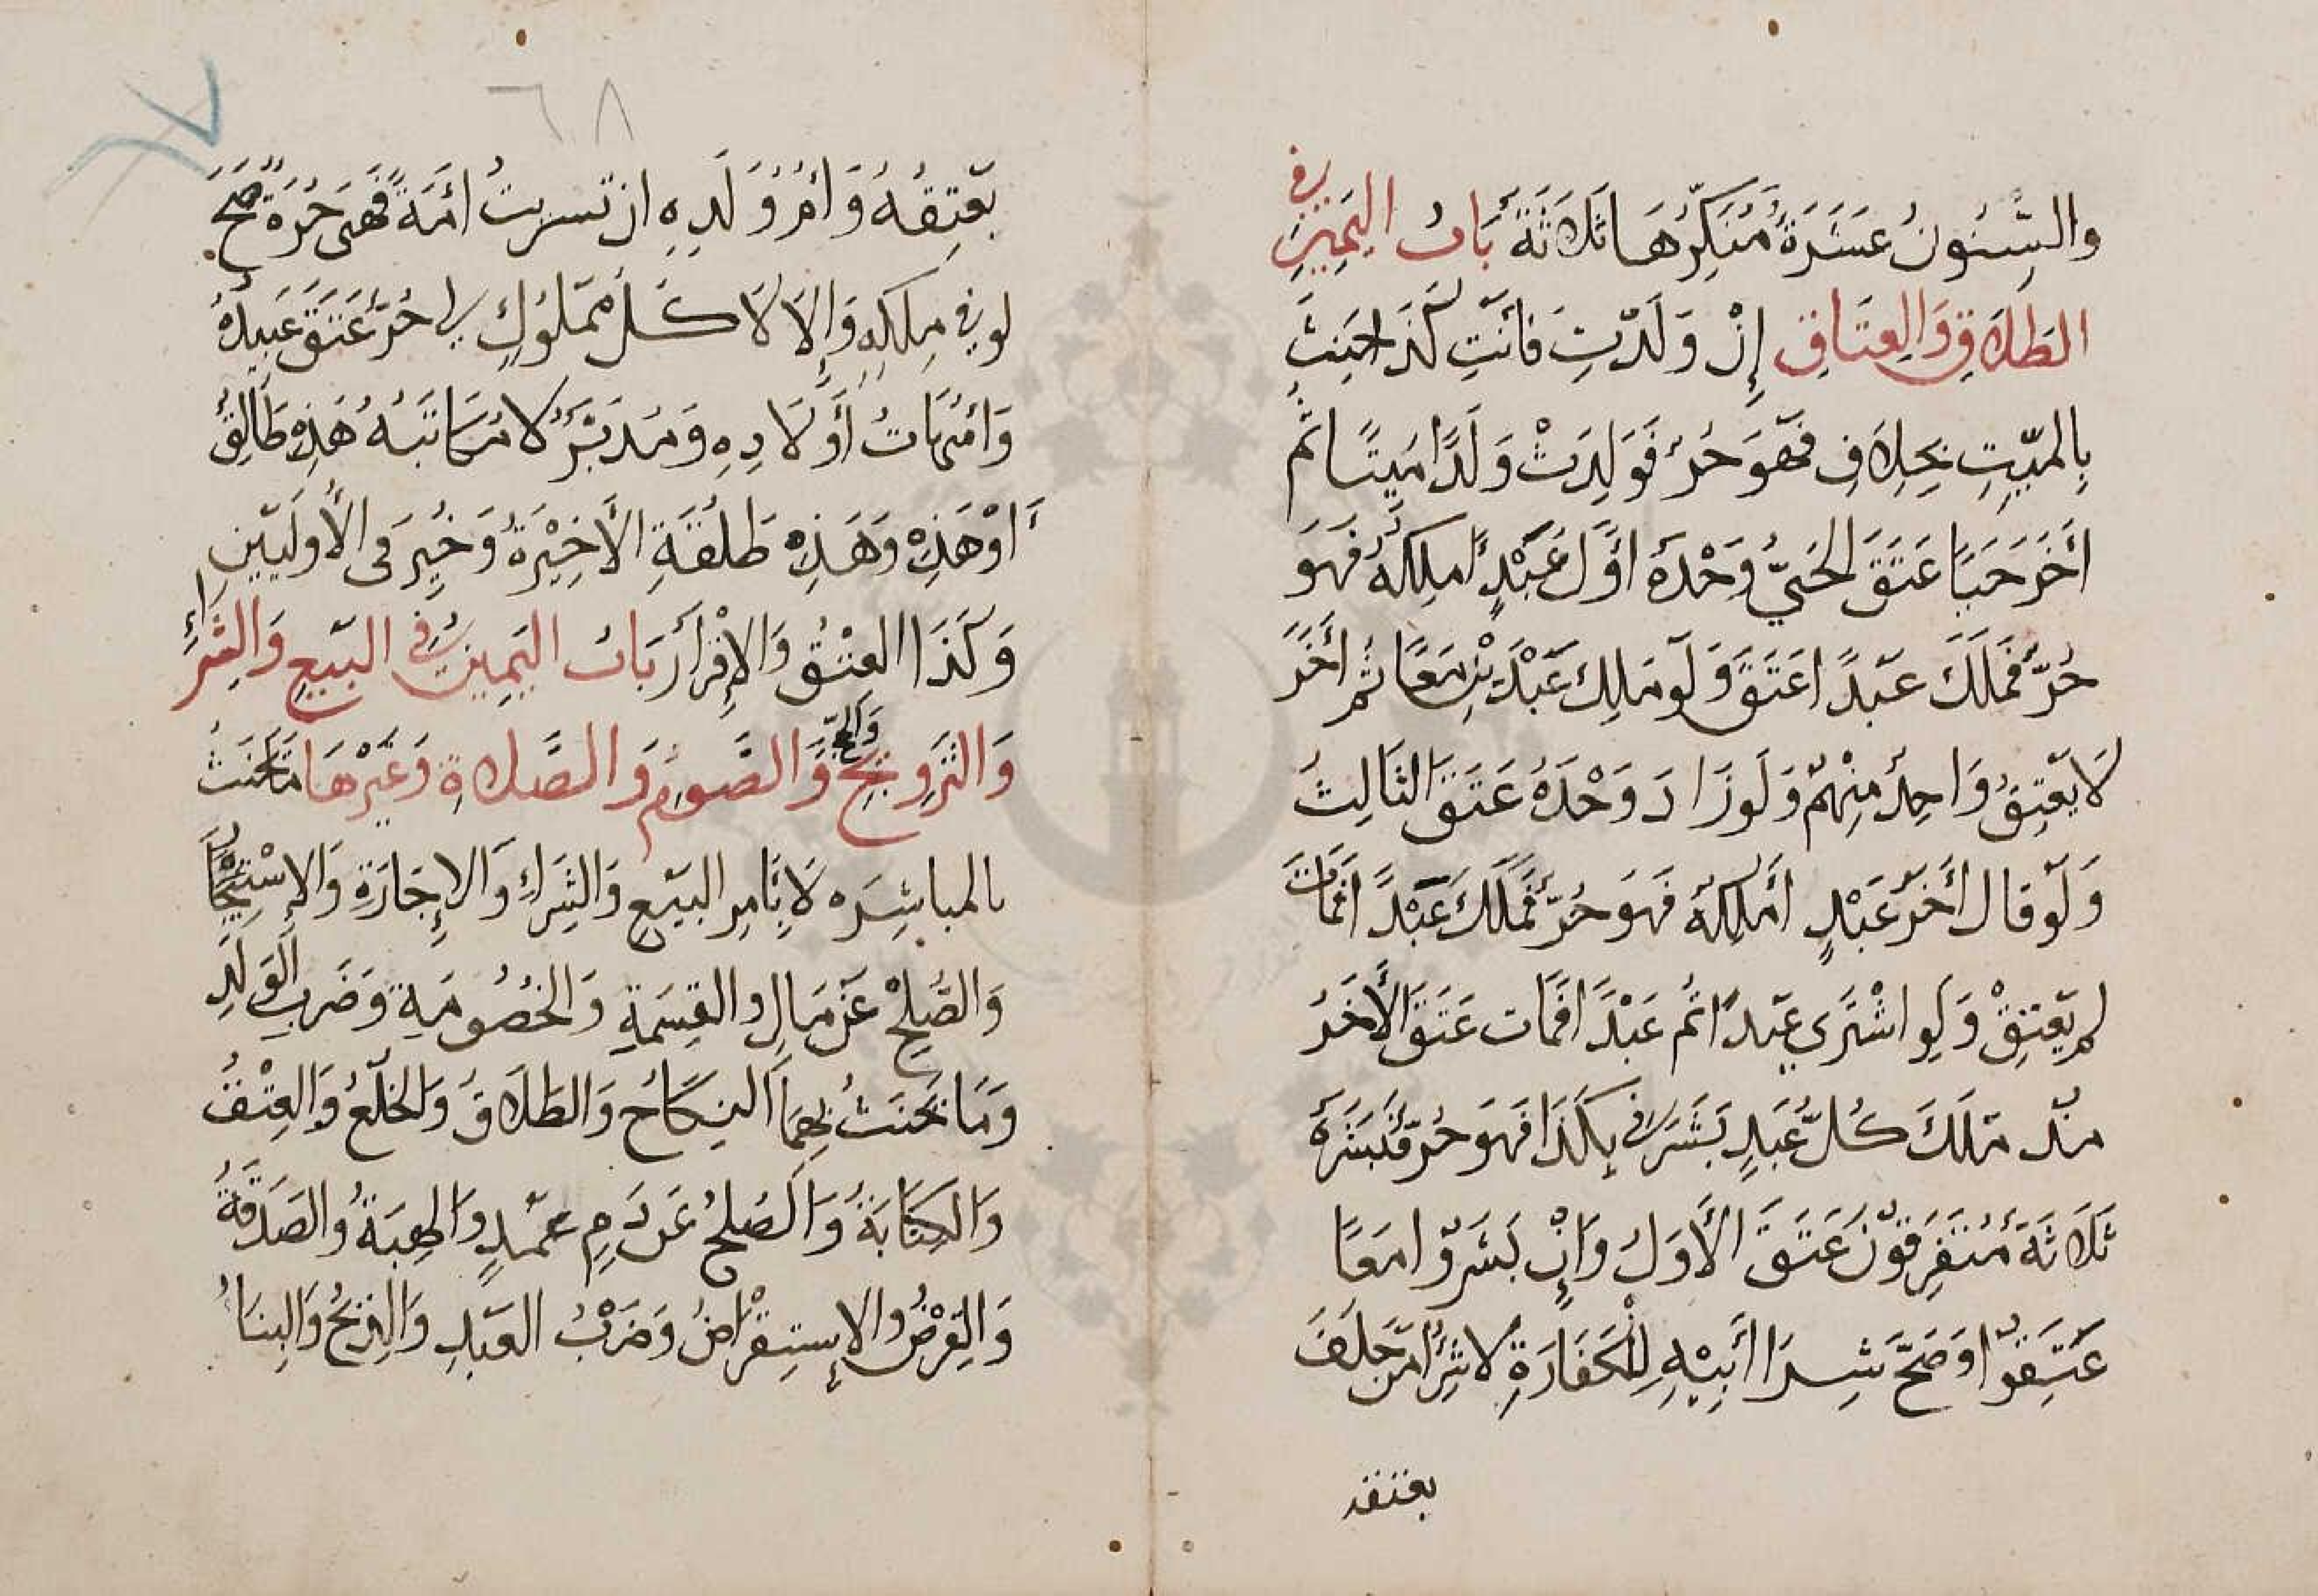 والسنون عشرة منكرها ثلاثة باب اليمين في
الطلاق والعتاق إن ولدت فأنت كذا حنث
بالميت بخلاف فهو حر فولدت ولدا ميتا ثم
أخر حيا عتق الحي وحده أول عبد أملكه فهو
حر فملك عبدا عتق ولو ملك عبدين معا ثم أخر
لا يعتق واحد منهم ولو زاد وحده عتق الثالث
ولو قال أخر عبد أملكه فهو حر فملك عبدا فمات
لم يعتق ولو اشترى عبدا ثم عبدا فمات عتق الأخر
منذ ملك كل عبد بشرني بكذا فهو حر فبشره
ثلاثة متفرقون عتق الأول وإن بشروا معا
عتقوا وصح شرا أبيه للكفارة لا شرا من حلف
بعتقه
٦٨
بعتقه وأم ولده ان تسريت أمة فهي حرة صح
لو في ملكه وإلا لا كل مملوك لي حر عتق عبيده
وأمهات أولاده ومدبر لا مكاتبه هذه طالق
أو هذه وهذه طلقة الأخيرة وخير في الأوليين
وكذا العتق والإقرار باب اليمين في البيع والشراء
والتزويج والحج والصوم والصلاة وغيرها ما يحنث
بالمباشره لا بالامر البيع والشراء والإجارة والإستيجار
والصلح عن مال والقسمة والخصومة وضرب الولد
وما يحنث بهما النكاح والطلاق والخلع والعتق
والكتابة والصلح عن دم عمد والهبة والصدقة
والقرض والإستقراض وضرب العبد والذبح والبناء